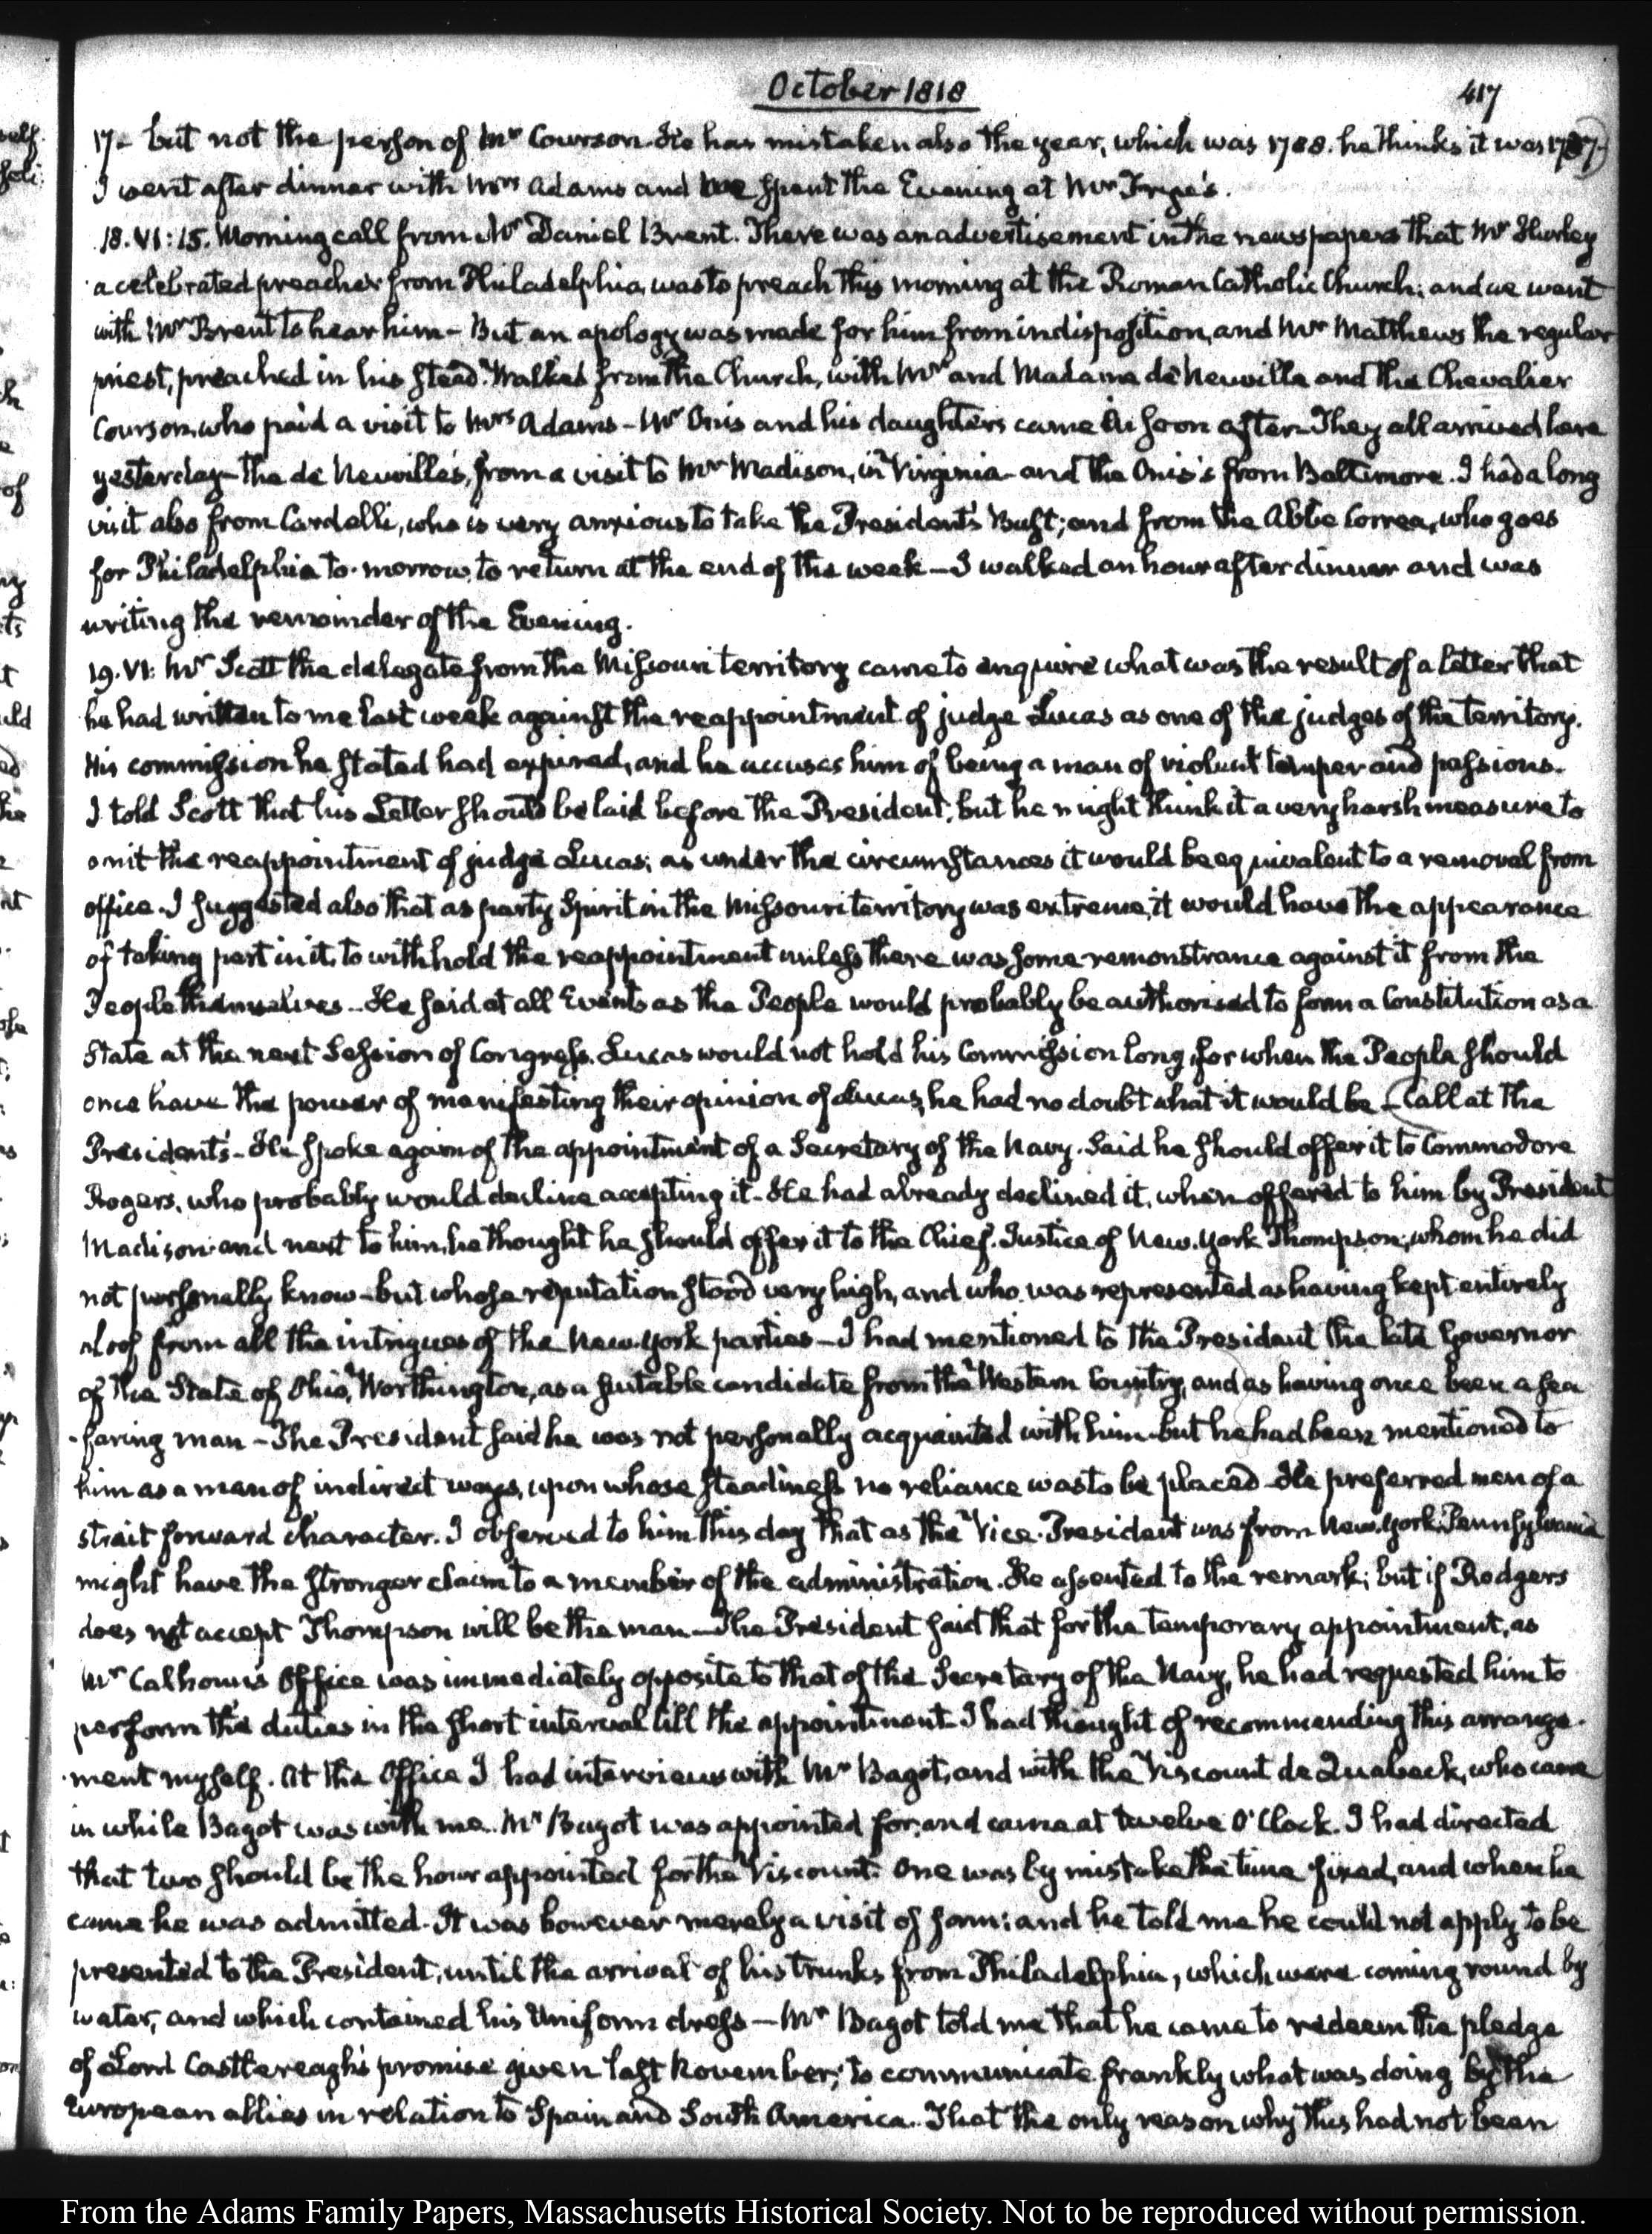 October 1818
417
17. but not the person of Mr Courson. He has mistaken also the year, which was 1788. he thinks it was 1787.
I went after dinner with Mrs Adams and we spent the Evening at Mr Frye's.
18. VI:15. Morning call from Mr Daniel Brent. There was an advertisement in the newspapers that Mr Hurley
a celebrated preacher from Philadelphia, was to preach this morning at the Roman Catholic Church; and we went
with Mr Brent to hear him — But an apology was made for him from indisposition, and Mr Matthews the regular
priest, preached in his stead. Walked from the Church, with Mr and Madame de Neuville and the Chevalier
Courson, who paid a visit to Mrs Adams — Mr Onis and his daughters came in soon after — They all arrived here
yesterday — the de Neuville's, from a visit to Mr Madison, in Virginia — and the Onis's from Baltimore. I had a long
visit also from Cardelli, who is very anxious to take the President's Bust; and from the Abbé Correa, who goes
for Philadelphia to-morrow, to return at the end of the week — I walked an hour after dinner and was
writing the remainder of the Evening.
19. VI: Mr Scott the delegate from the Missouri territory came to enquire what was the result of a letter that
he had written to me last week against the reappointment of judge Lucas as one of the judges of the territory.
His commission he stated had expired, and he accuses him of being a man of violent temper and passions.
I told Scott that his Letter should be laid before the President, but he might think it a very harsh measure to
omit the reappointment of judge Lucas; as under the circumstances it would be equivalent to a removal from
office. I suggested also that as party Spirit in the Missouri territory was extreme, it would have the appearance
of taking part in it, to withhold the reappointment unless there was some remonstrance against it from the
People themselves — He said at all Events as the People would probably be authorised to form a Constitution as a
State at the next Session of Congress, Lucas would not hold his Commission long, for when the People should
once have the power of manifesting their opinion of Lucas, he had no doubt what it would be — Call at the
President's — He spoke again of the appointment of a Secretary of the Navy. Said he should offer it to Commodore
Rogers, who probably would decline accepting it — He had already declined it, when offered to him by President
Madison and next to him, he thought he should offer it to the Chief-Justice of New-York Thompson, whom he did
not personally know — but whose reputation stood very high, and who was represented as having kept entirely
aloof from all the intrigues of the New-York parties — I had mentioned to the President the late Governor
of the State of Ohio, Worthington, as a suitable candidate from the Western Country, and as having once been a sea
-faring man — The President said he was not personally acquainted with him but he had been mentioned to
him as a man of indirect ways, upon whose steadiness no reliance was to be placed — He preferred men of a
strait forward character. I observed to him this day that as the Vice-President was from New-York, Pennsylvania
might have the stronger claim to a member of the administration. He assented to the remark; but if Rodgers
does not accept Thompson will be the man — The President said that for the temporary appointment, as
Mr Calhoun's Office was immediately opposite to that of the Secretary of the Navy, he had requested him to
perform the duties in the short interval till the appointment — I had thought of recommending this arrange-
-ment myself. At the Office I had interviews with Mr Bagot, and with the Viscount de Quabeck, who came
in while Bagot was with me. Mr Bagot was appointed for, and came at twelve O'Clock. I had directed
that two should be the hour appointed for the Viscount. One was by mistake the time fixed, and when he
came he was admitted. It was however merely a visit of form; and he told me he could not apply to be
presented to the President, until the arrival of his trunks from Philadelphia, which were coming round by
water, and which contained his Uniform dress — Mr Bagot told me that he came to redeem the pledge
of Lord Castlereagh's promise given last November, to communicate frankly what was doing by the
European allies in relation to Spain and South America. That the only reason why this had not been
From the Adams Family Papers, Massachusetts Historical Society. Not to be reproduced without permission.